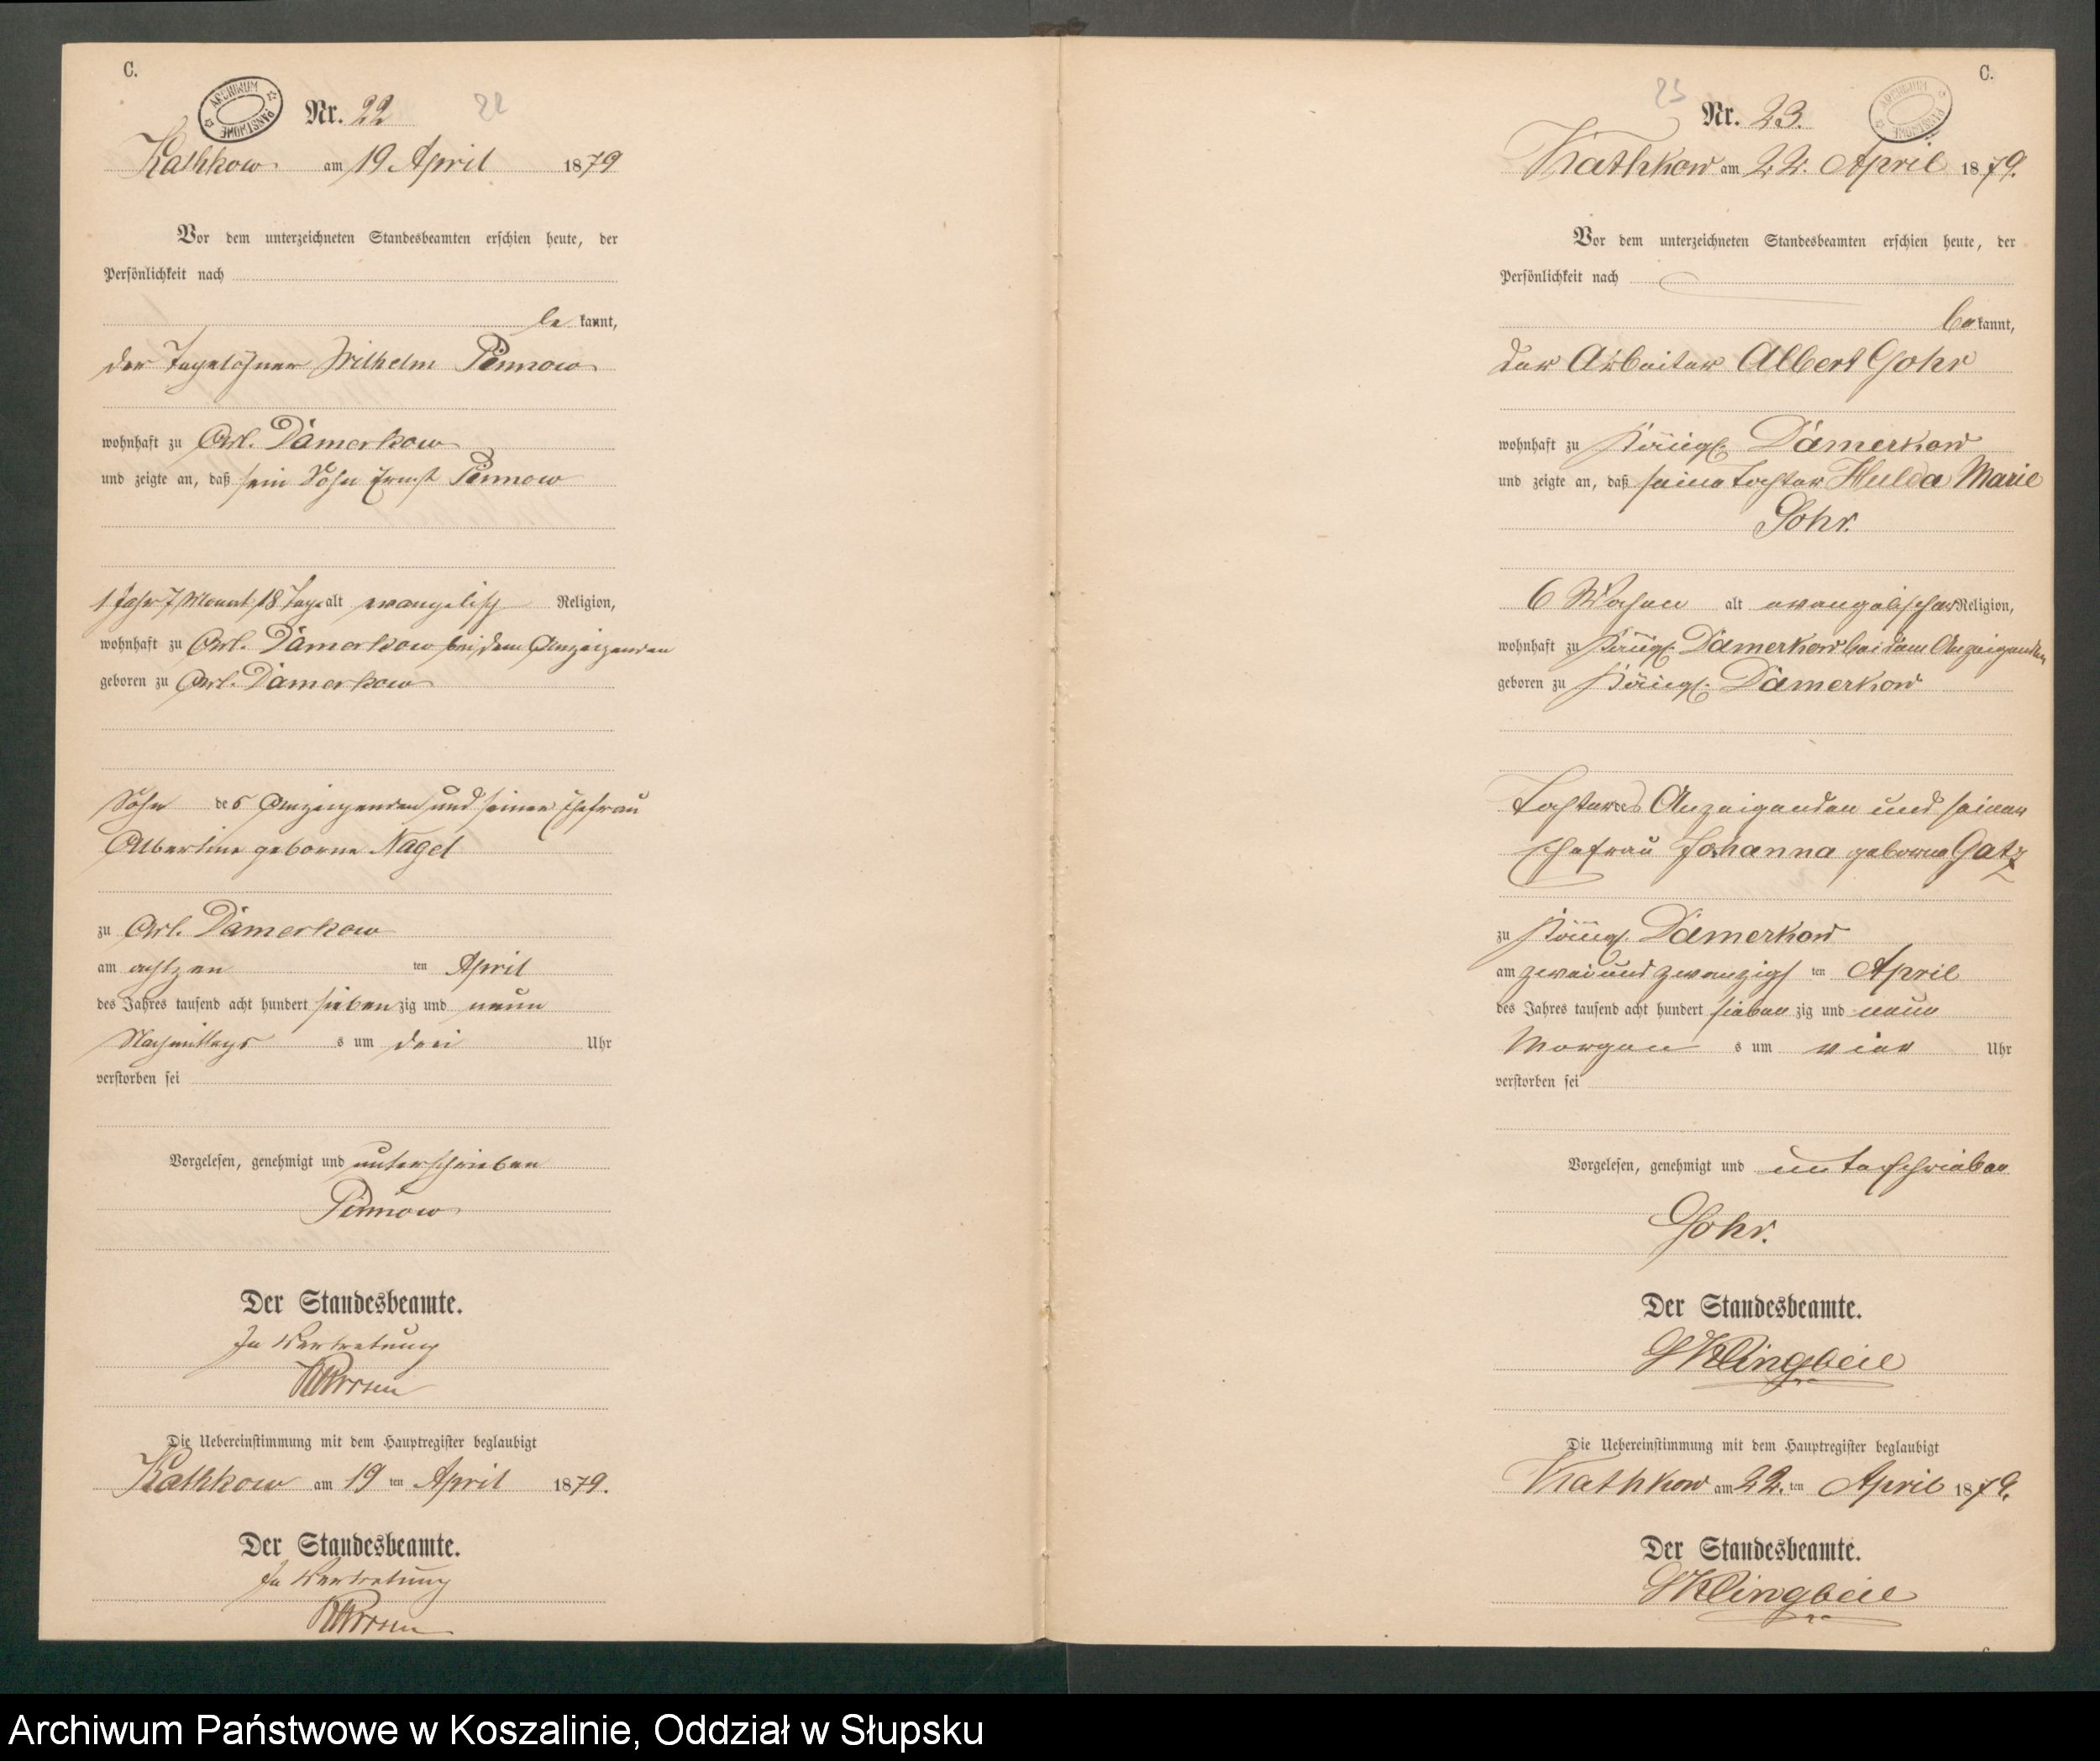 C.
ARCHIWUM PAŃSTWOWE
Nr. 22
22
Kathkow am 19 April 1879
Vor dem unterzeichneten Standesbeamten erschien heute, der
Persönlichkeit nach
be kannt,
der Tagelöhner Wilhelm Pinnow
wohnhaft zu Adl. Dämerkow
und zeigte an, daß sein Sohn Ernst Pinnow
1 Jahr 7 Monat 18 Tage alt evangelisch Religion,
wohnhaft zu Adl. Dämerkow bei dem Anzeigenden
geboren zu Adl. Dämerkow
Sohn des Anzeigenden und seiner Ehefrau
Albertine geborne Nagel
zu Adl. Dämerkow
am achtzen ten April
des Jahres tausend acht hundert sieben zig und neun
Nachmittags s um drei Uhr
verstorben sei
Vorgelesen, genehmigt und unterschrieben
Pinnow
Der Standesbeamte.
In Vertretung
Die Uebereinstimmung mit dem Hauptregister beglaubigt
Kathkow am 19 ten April 1879.
Der Standesbeamte.
In Vertretung
C.
ARCHIWUM PAŃSTWOWE
23
Nr. 23.
Kathkow am 22. April 1879.
Vor dem unterzeichneten Standesbeamten erschien heute, der
Persönlichkeit nach
be kannt,
der Arbeiter Albert Gohr
wohnhaft zu Königl. Dämerkow
und zeigte an, daß seine Tochter Hulda Marie
Gohr.
6 Wochen alt evangelischer Religion,
wohnhaft zu Königl. Dämerkow bei dem Anzeigenden
geboren zu Königl. Dämerkow
Tochter des Anzeigenden und seiner
Ehefrau Johanna geborne Gatz
zu Königl. Dämerkow
am zwei und zwanzigs ten April
des Jahres tausend acht hundert sieben zig und neun
Morgen s um vier Uhr
verstorben sei
Vorgelesen, genehmigt und unterschrieben
Gohr.
Der Standesbeamte.
Klingbeil
Die Uebereinstimmung mit dem Hauptregister beglaubigt
Kathkow am 22. ten April 1879.
Der Standesbeamte.
Klingbeil
Archiwum Państwowe w Koszalinie, Oddział w Słupsku